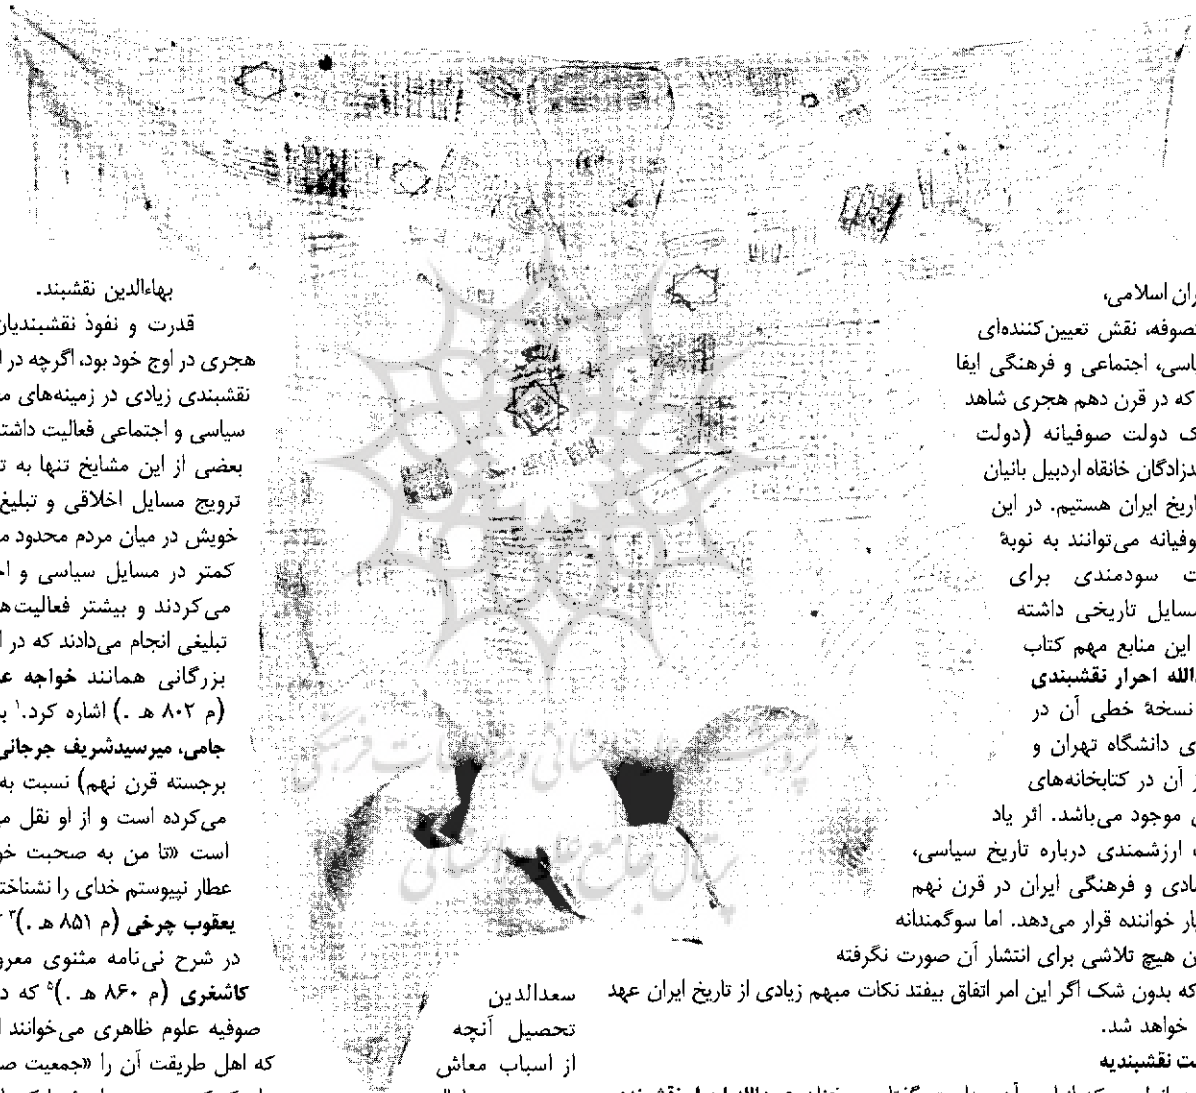 ران اسلامی،
تصوفه، نقش تعیین‌کننده‌ای
یاسی، اجتماعی و فرهنگی ایفا
که در قرن دهم هجری شاهد
ک دولت صوفیانه (دولت
دزادگان خانقاه اردبیل بانیان
اریخ ایران هستیم. در این
وفیانه می‌توانند به نوبهٔ
ت سودمندی برای
مسایل تاریخی داشته
این منابع مهم کتاب
دالله احرار نقشبندی
نسخهٔ خطی آن در
ی دانشگاه تهران و
ر آن در کتابخانه‌های
ی موجود می‌باشد. اثر یاد
ارزشمندی درباره تاریخ سیاسی،
صادی و فرهنگی ایران در قرن نهم
یار خواننده قرار می‌دهد. اما سوگمندانه
ن هیچ تلاشی برای انتشار آن صورت نگرفته
که بدون شک اگر این امر اتفاق بیفتد نکات مبهم زیادی از تاریخ ایران عهد
خواهد شد.
ت نقشبندیه
بهاءالدین نقشبند.
قدرت و نفوذ نقشبندیان
هجری در اوج خود بود، اگرچه در ا
نقشبندی زیادی در زمینه‌های م
سیاسی و اجتماعی فعالیت داشتـ
بعضی از این مشایخ تنها به تـ
ترویج مسایل اخلاقی و تبلیغ
خویش در میان مردم محدود مـ
کمتر در مسایل سیاسی و اجـ
می‌کردند و بیشتر فعالیت‌هـ
تبلیغی انجام می‌دادند که در ا
بزرگانی همانند خواجه عـ
(م ۸۰۲ هـ .) اشاره کرد.۱ بـ
جامی، میرسیدشریف جرجانی
برجسته قرن نهم) نسبت به
می‌کرده است و از او نقل مـ
است «تا من به صحبت خو
عطار نپیوستم خدای را نشناختـ
یعقوب چرخی (م ۸۵۱ هـ .)۳
در شرح نی‌نامه مثنوی معرو
کاشغری (م ۸۶۰ هـ .)۵ که د
صوفیه علوم ظاهری می‌خوانند ا
که اهل طریقت آن را «جمعیت صـ
سعدالدین
تحصیل آنچه
از اسباب معاش
پژوهشگاه علوم انسانی و مطالعات فرهنگی
پرتال جامع علوم انسانی